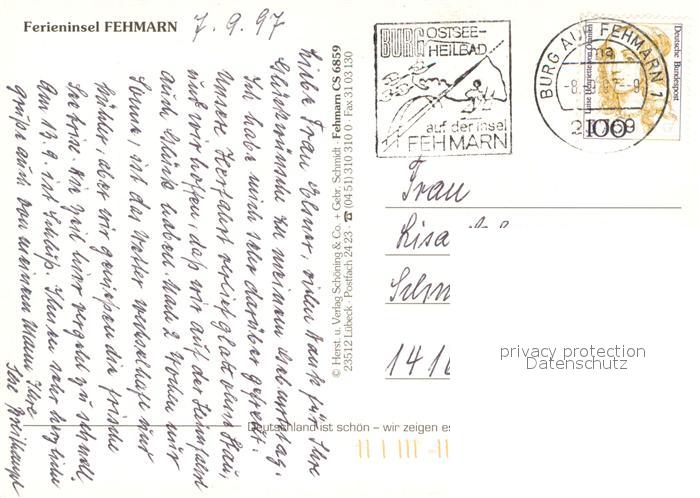 Ferieninsel FEHMARN
7.9.97
Liebe Frau Elsner, vielen Dank für Ihre
Glückwünsche zu meinem Geburtstag.
Ich habe mich sehr darüber gefreut.
Unsere Herfahrt verlief glatt ohne Stau,
und wir hoffen, daß wir auf der Heimfahrt
auch Glück haben. Nach 2 Wochen nur
Sonne, ist das Wetter wechselhaft und
kühler, aber wir genießen die frische
Seeluft. Die Zeit hier vergeht zu schnell.
Am 13.9 ist Schluß. Ihnen sehr herzliche
Grüße auch von meinem Mann Ihre
Ihre
© Herst. u. Verlag Schöning & Co. + Gebr. Schmidt · Fehmarn OS 6859
23512 Lübeck · Postfach 24 23 · ☎ (04 51) 310 310 0 · Fax 31 03 130
BURG OSTSEE-
HEILBAD
auf der Insel
FEHMARN
BURG AUF FEHMARN 1
na
-8.
23769
Deutsche Bundespost
100
Frau
Lisa
Schm
141
privacy protection
Datenschutz
Deutschland ist schön – wir zeigen es